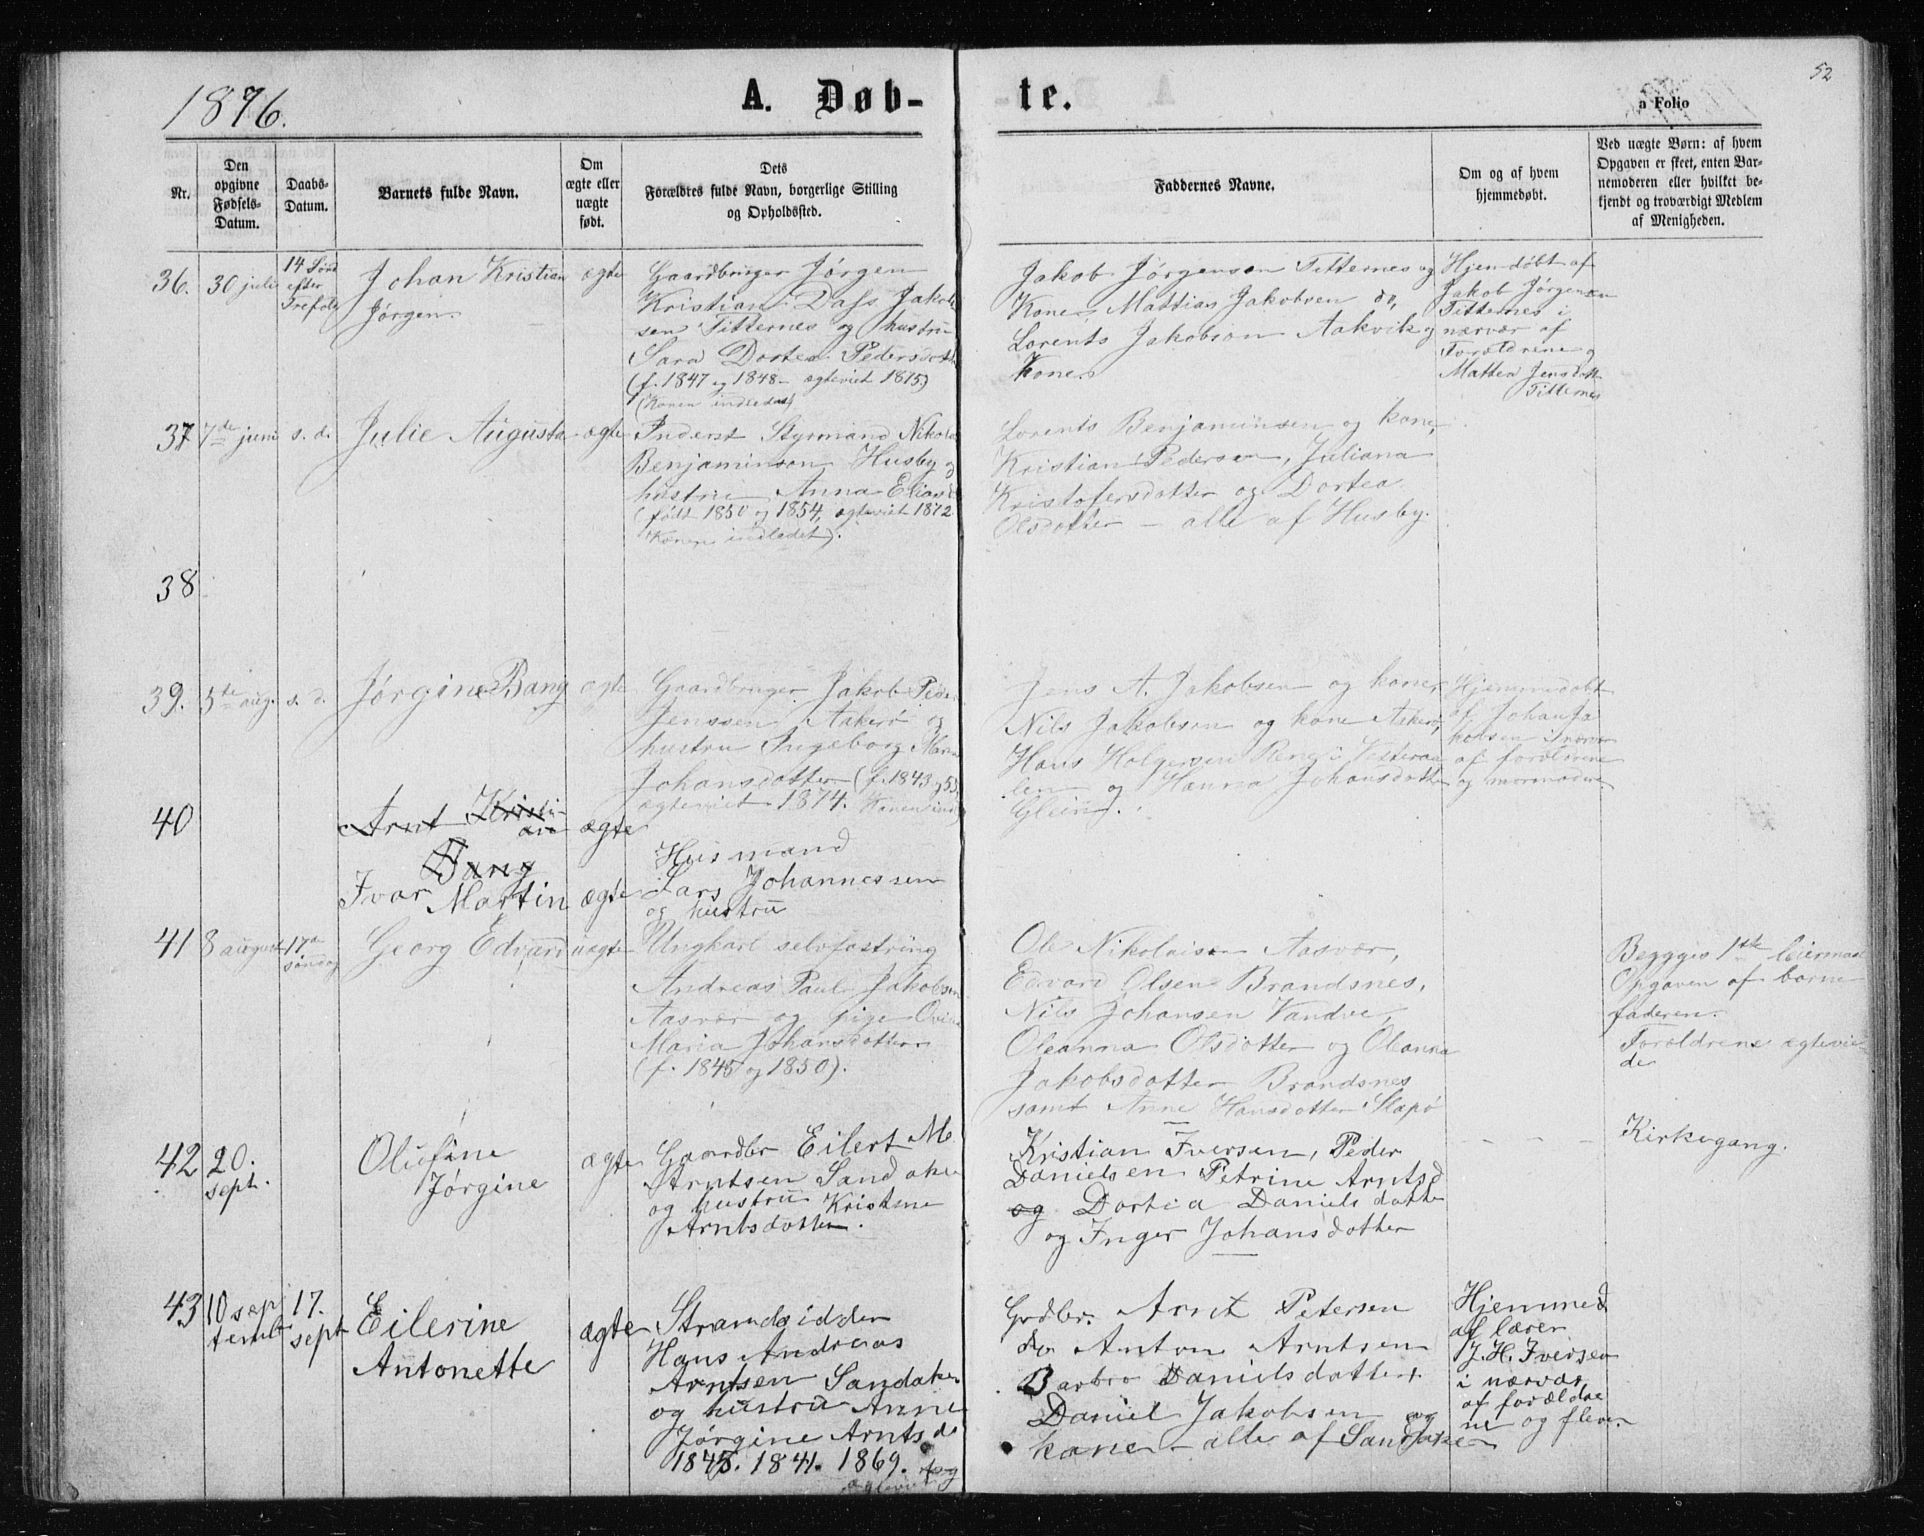 1876.
A. Døb-
te.
a Folio
52
Nr.
Den
opgivne
Fødsels-
Datum.
Daabs-
Datum.
Barnets fulde Navn.
Om
ægte eller
uægte
født.
Dets
Forældres fulde Navn, borgerlige Stilling
og Opholdssted.
Faddernes Navne.
Om og af hvem
hjemmedøbt.
Ved uægte Børn: af hvem
Opgaven er skeet, enten Bar-
nemoderen eller hvilket be-
kjendt og troværdigt Medlem
af Menigheden.
36.
30 juli
14 Sønd
efter
Trefold
Johan Kristian
Jørgen.
ægte
Gaardbruger Jørgen
Kristian Dass Jakob
sen Titternes og hustru
Sara Dortea Pedersdott
(f. 1847 og 1848 - ægteviet 1875)
(Konen indledet)
Jakob Jørgensen Titternes og
Kone, Mattias Jakobsen do,
Lorents Jakobson Aakvik og
Kone.
Hjemdøbt af
Jakob Jørgensen
Titternes i
nærvær af
Forældrene og
Mattea Jensdott
Titternes
37
7de juni
s. d.
Julie Augusta
ægte
Inderst Styrmand Nikolai
Benjaminson Husby og
hustru Anna Eliasd
(født 1850 og 1854, ægteviet 1872
Konen indledet).
Lorents Benjaminsen og kone,
Kristian Pedersen, Juliana
Kristofersdotter og Dortea
Olsdotter - alle af Husby.
38
39.
5te aug.
s. d.
Jørgine Bang
ægte
Gaardbruger Jakob Peder
Jenssen Aakerø og
hustru Ingeborg Maria
Johansdotter (f. 1843 og 53,
ægteviet 1874. Konen ind)
Jens A. Jakobsen og kone,
Nils Jakobsen og kone Akerø,
Hans Holgersen Reng i Vesteraa
len og Hanna Johansdotter
Glein.
Hjemmedøbt
af Johan Ja
kobsen i nærvær
af forældrene
og mormodere
40
Arnt Kristi-
an
Bang
ægte
Ivar Martin
ægte
Husmand
Lars Johannessen
og hustru
41
8 august
17de
søndag
Georg Edvard
uægte
Ungkarl selvfostring
Andreas Paul Jakobsen
Aasvær og pige Ovidia
Maria Johansdotter
(f. 1845 og 1850).
Ole Nikolaisen Aasvær,
Edvard Olsen Brandsnes,
Nils Johansen Vandve,
Oleanna Olsdotter og Oleanna
Jakobsdotter Brandsnes
samt Anne Hansdotter Slapø
Begges 1ste leiermaal
Opgaven af barne
faderen.
Forældrene ægtevie
de
42
20.
sept.
Olufine
Jørgine
ægte
Gaardbr Eilert M
Arntsen Sandaker
og hustru Kristine
Arntsdotter.
Kristian Iversen, Peder
Danielsen Petrine Arntsd
og Dortea Danielsdotter
og Inger Johansdotter
- - -
Kirkegang.
43
10 sep
tembr
17.
sept
Eilerine
Antonette
ægte
Strandsidder
Hans Andreas
Arntsen Sandaker
og hustru Anne
Jørgine Arntsd.
1845. 1841. 1869.
ægteviet
Grdbr. Arnt Petersen
do Anton Arntsen
Barbro Danielsdotter
Daniel Jakobsen og
kone - alle af Sandaker
Hjemmed
af lærer
J. H. Iversen
i nærvær
af forældre
ne og flere